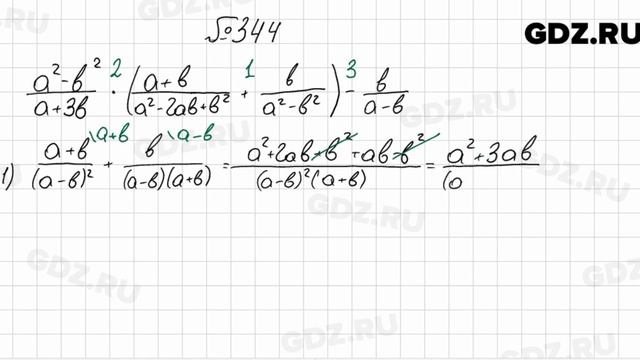 №344
GDZ.RU
(a²-b²)/(a+3b) ·² ((a+b)/(a²-2ab+b²) +¹ b/(a²-b²)) -³ b/(a-b)
1) (a+b)/(a-b)² \a+b + b/((a-b)(a+b)) \a-b = (a²+2ab+b²+ab-b²)/((a-b)²(a+b)) = (a²+3ab)/(a